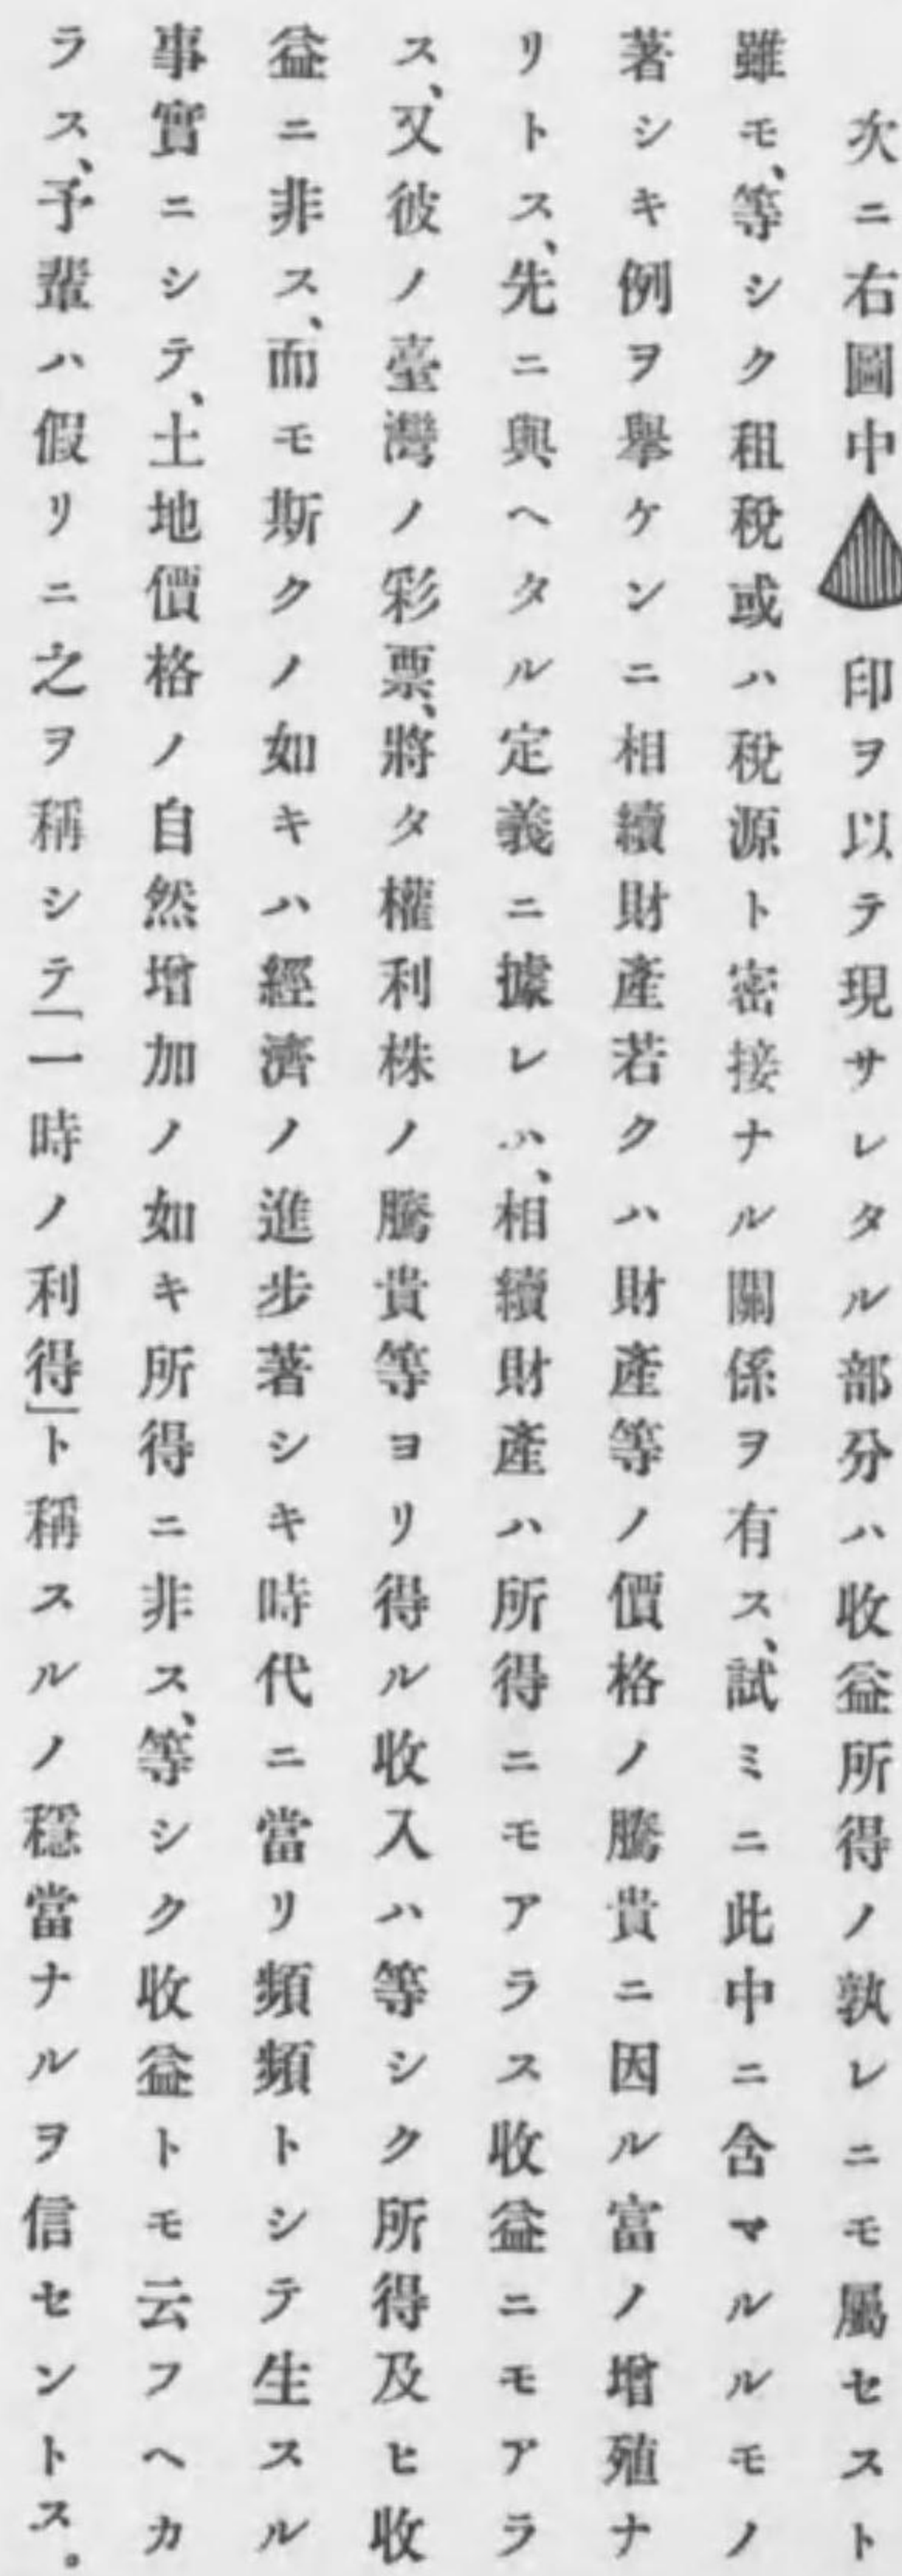 次ニ右圖中印ヲ以テ現サレタル部分ハ收益所得ノ孰レニモ屬セスト
雖モ、等シク租稅或ハ稅源ト密接ナル關係ヲ有ス、試ミニ此中ニ含マルルモノ
著シキ例ヲ擧ケンニ相續財產若クハ財產等ノ價格ノ騰貴ニ因ル富ノ增殖ナ
リトス、先ニ與ヘタル定義ニ據レハ、相續財產ハ所得ニモアラス收益ニモアラ
ス、又彼ノ臺灣ノ彩票、將タ權利株ノ騰貴等ヨリ得ル收入ハ等シク所得及ヒ收
益ニ非ス、而モ斯クノ如キハ經濟ノ進步著シキ時代ニ當リ頻頻トシテ生スル
事實ニシテ、土地價格ノ自然增加ノ如キ所得ニ非ス、等シク收益トモ云フヘカ
ラス、予輩ハ假リニ之ヲ稱シテ「一時ノ利得」ト稱スルノ穩當ナルヲ信セントス。